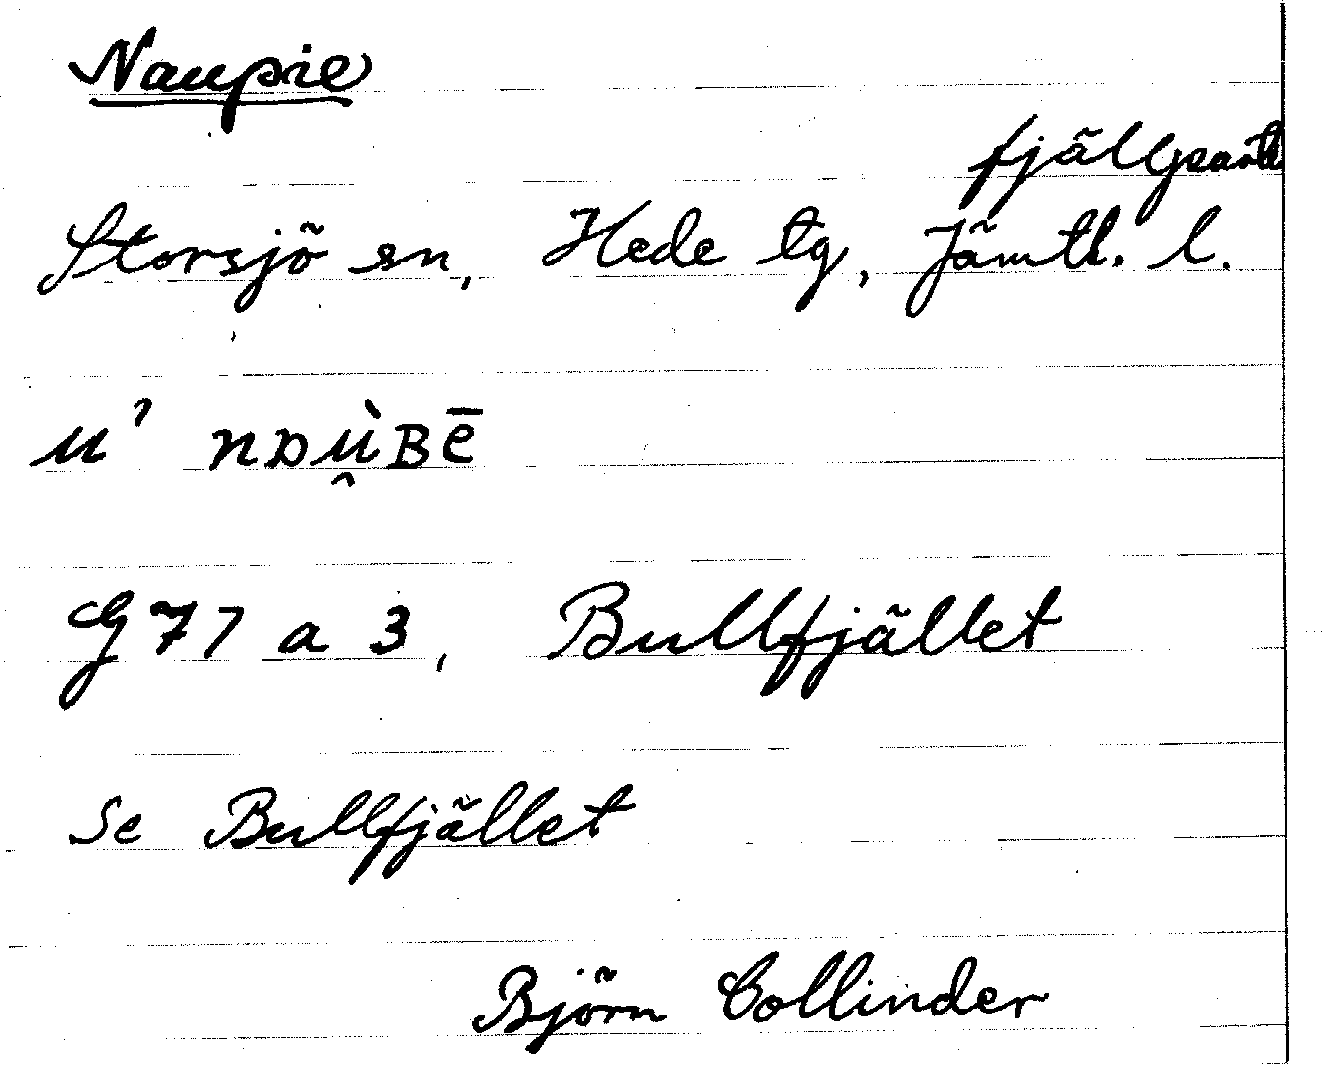 Naupie
fjäll
Storsjö sn, Hede tg, Jämtl. l.
G 77 a 3, Bullfjället
Se Bullfjället
Björn Collinder